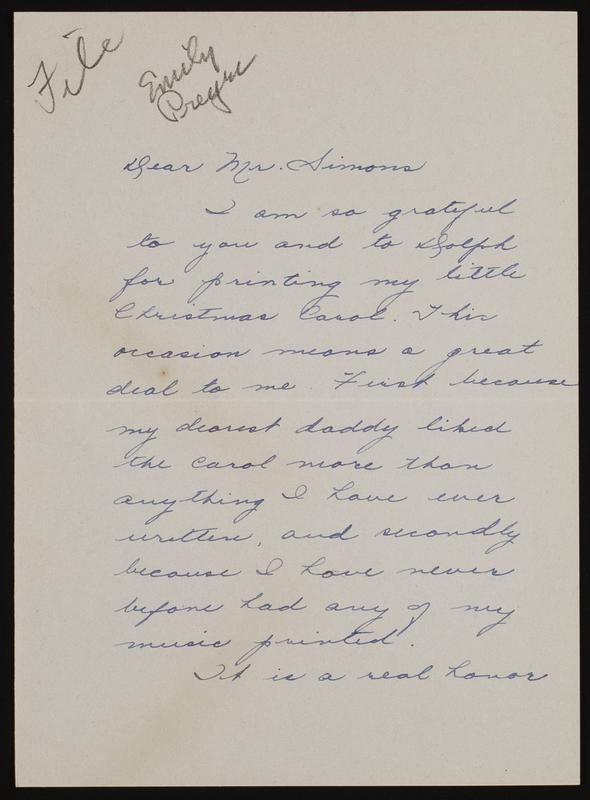 File
Emily
Preyer
Dear Mr. Simons
I am so grateful
to you and to Dolph
for printing my little
Christmas Carol. This
occasion means a great
deal to me. First because
my dearest daddy liked
the carol more than
anything I have ever
written, and secondly
because I have never
before had any of my
music printed.
It is a real honor